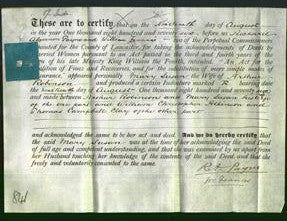 These are to certify that on the sixteenth day of August
in the year One thousand eight hundred and seventy one before
Payne and two of the Perpetual Commissioners
appointed for the County of Lancaster, for taking the acknowledgments of Deeds by
Married Women pursuant to an Act passed in the third and fourth years of the
reign of his late Majesty King William the Fourth, intituled "An Act for the
abolition of Fines and Recoveries, and for the substitution of more simple modes of
Assurance, appeared personally Mary Susan the Wife of Arthur
Robinson and produced a certain marked A
the sixteenth day of August One thousand eight hundred and seventy one
and made between Arthur Robinson and Mary Susan his wife
of the one part and William Christopher and
Thomas Campbell Clay of the other part
and acknowledged the same to be her act and deed And we do hereby certify that
the said Mary Susan was at the time of her acknowledging the said Deed
of full age and competent understanding, and that she was examined by us apart from
her Husband touching her knowledge of the contents of the said Deed and that she
freely and voluntarily consented to the same.
Payne